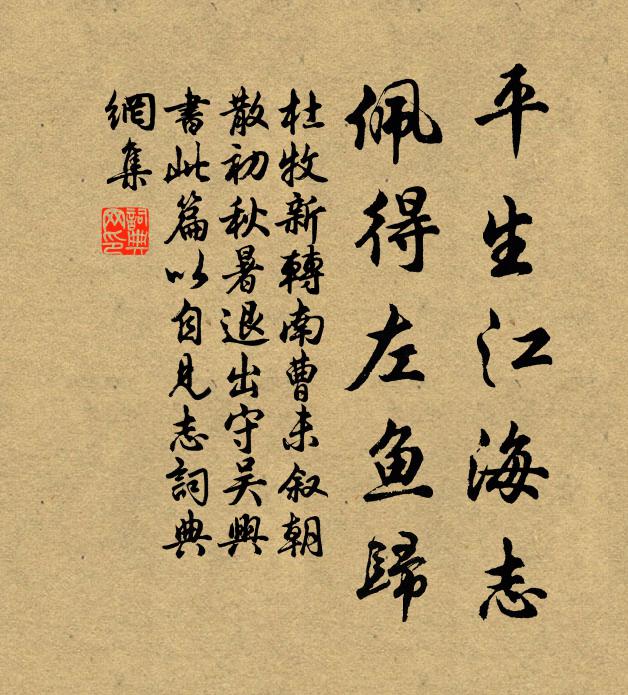 平生江海志
佩得左鱼歸
杜牧新轉南曹未叙朝
散初秋暑退出守吴興
書此篇以自見志詞典
網集
詞典
网印